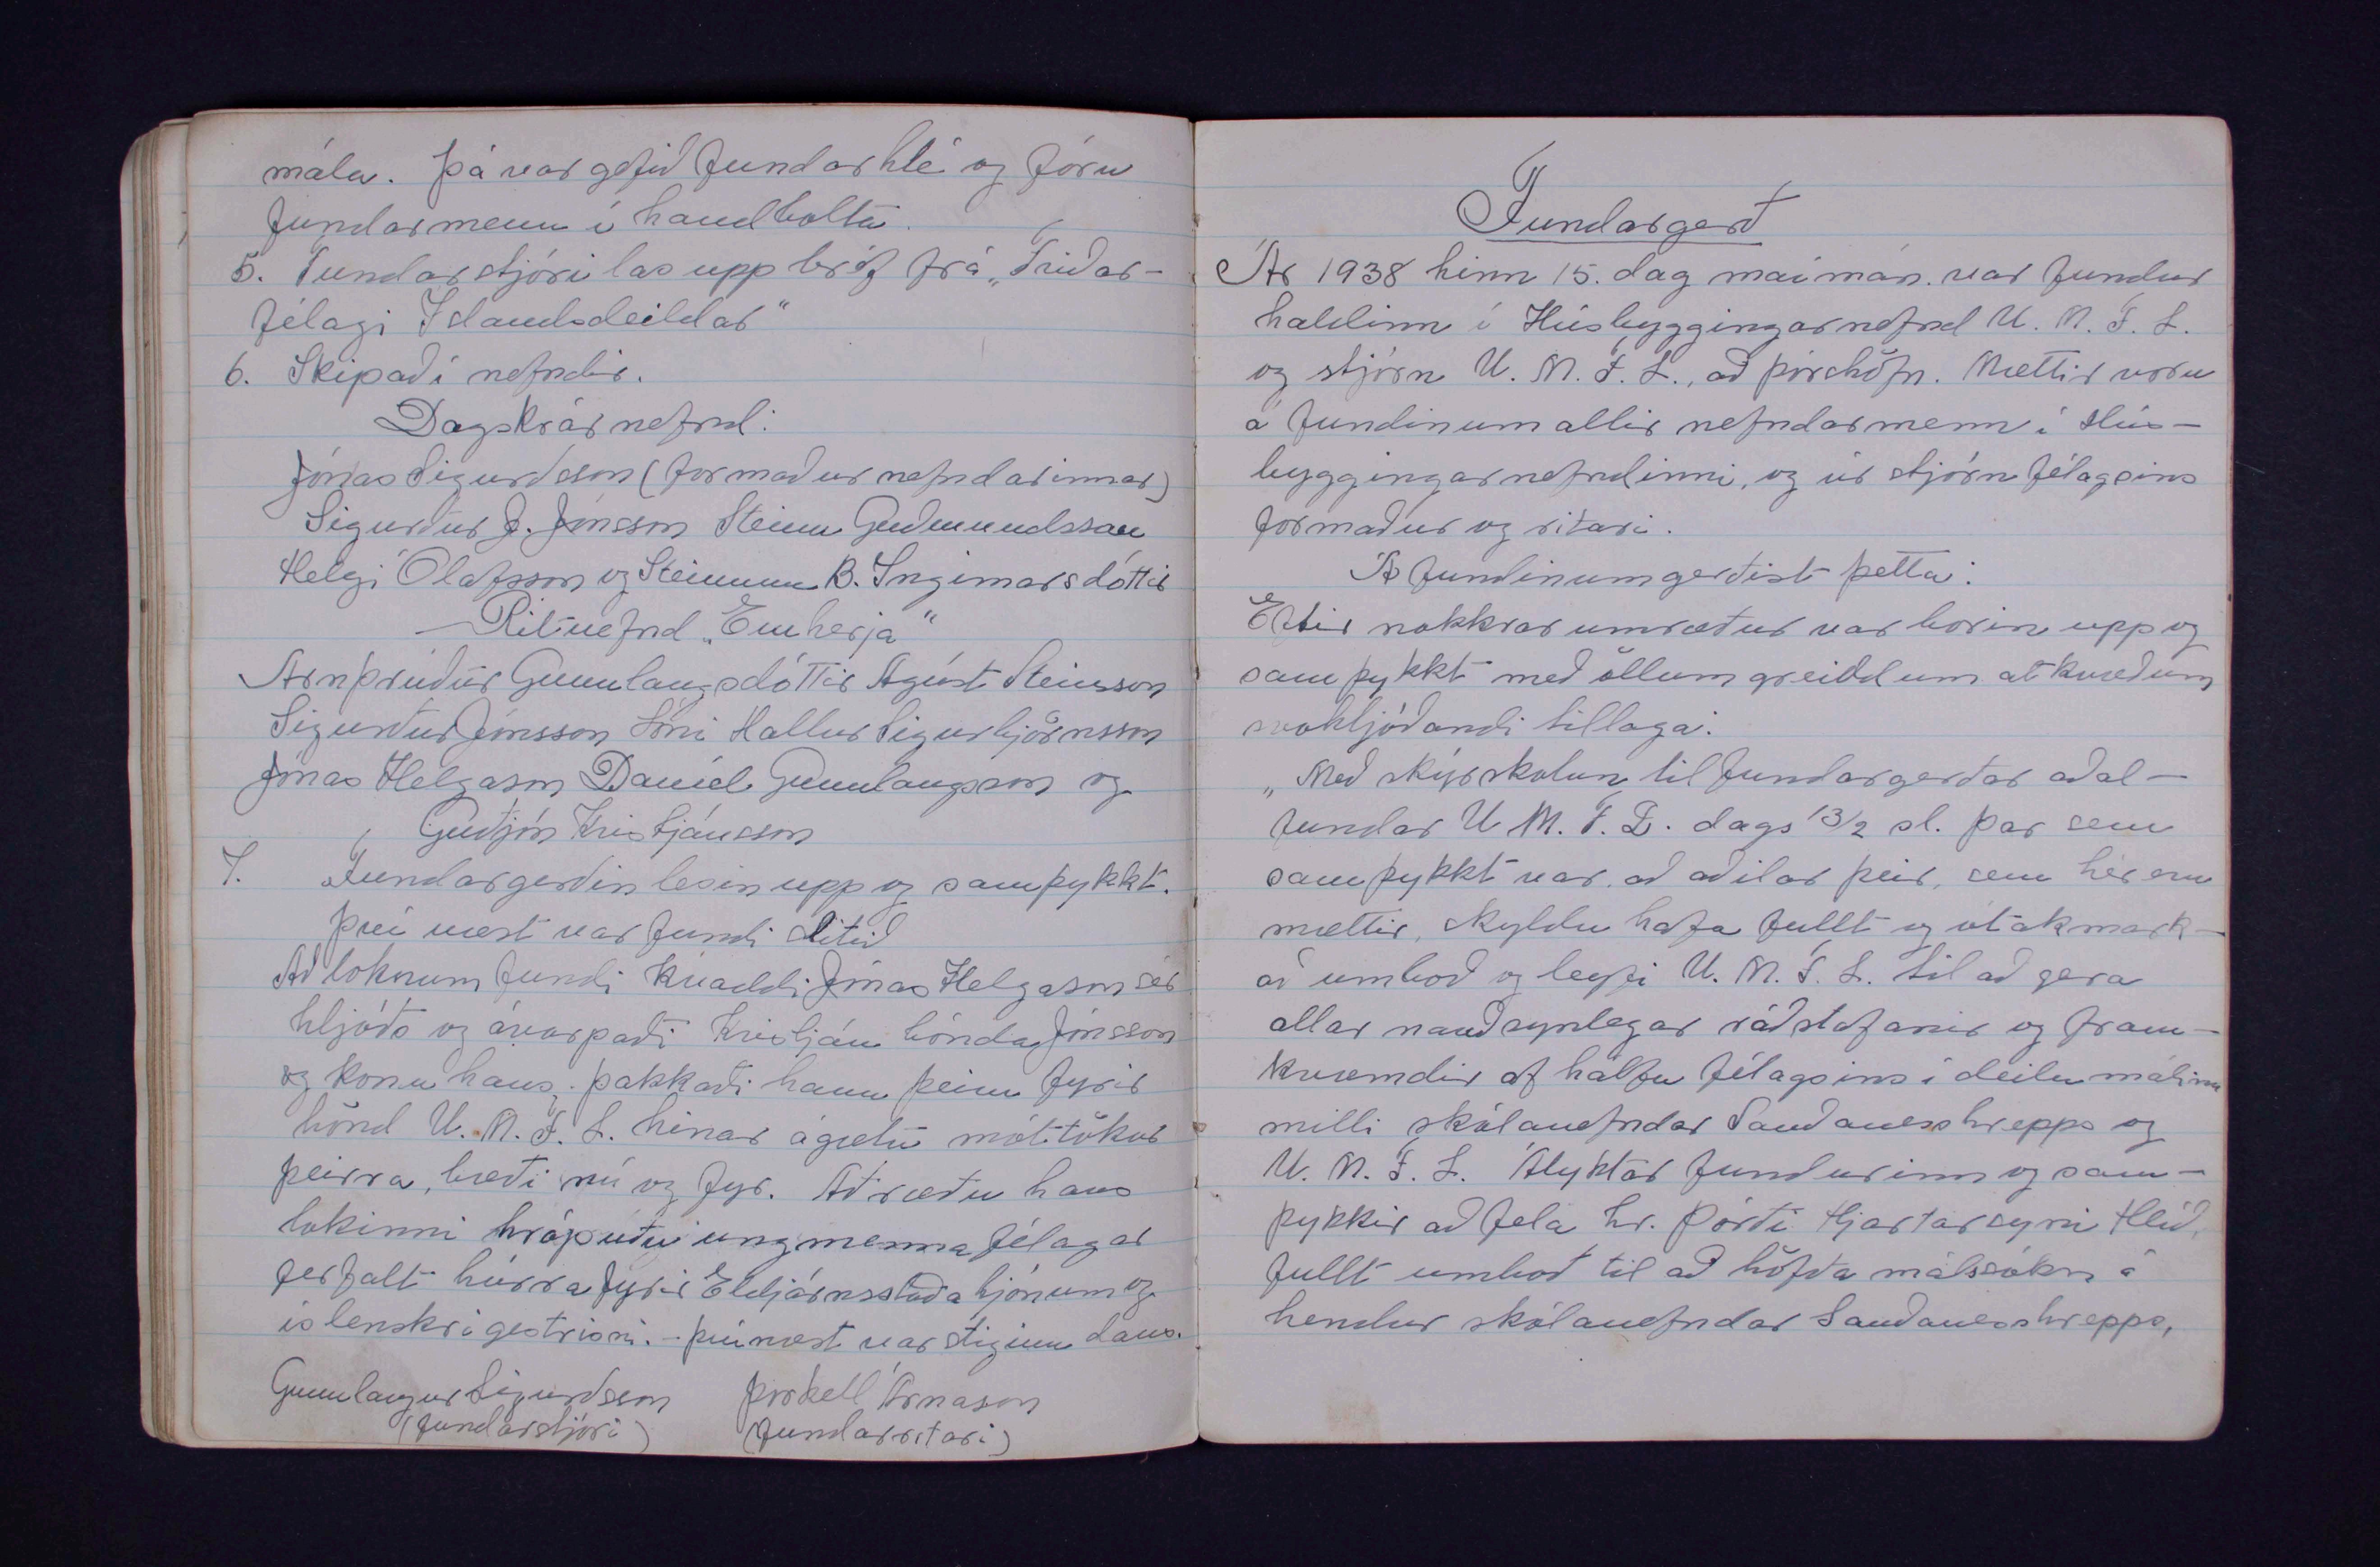 mála. Þá var gefið fundarhlé og fóru
fundarmenn í handbolta.
5. Fundarstjóri las upp bréf frá „Friðar-
félagi Íslandsdeildar"
6. Skipað í nefndir.
Dagskrárnefnd:
Jónas Sigurðsson (formaður nefndarinnar)
Sigurður J. Jónsson Steinn Guðmundsson
Helgi Ólafsson og Steinunn B. Ingimarsdóttir
Ritnefnd „Einherja"
Arnþrúður Gunnlaugsdóttir Ágúst Steinsson
Sigurður Jónsson Hallur Sigurbjörnsson
Jónas Helgason Daníel Gunnlaugsson og
Guðjón Kristjánsson
7. Fundargerðin lesin upp og samþykkt.
Því næst var fundi slitið
Að loknum fundi kvaddi Jónas Helgason sér
hljóðs og ávarpaði Kristján bónda Jónsson
og konu hans. þakkaði hann þeim fyrir
hönd U. M. F. L. hinar ágætu móttökur
þeirra, bæði nú og fyr. Að ræðu hans
lokinni hrópuðu ungmennafélagar
ferfalt húrra fyrir Eldjárnsstaðahjónum og
íslenskri gestrisni. - Því næst var stiginn dans.
Gunnlaugur Sigurðsson Þorkell Árnason
(fundarstjóri) (fundarritari)
Fundargerð
Ár 1938 hinn 15. dag maí mán. var fundur
haldinn í Húsbyggingarnefnd U. M. F. L.
og stjórn U. M. F. L., að Þórshöfn. Mættir voru
á fundinum allir nefndarmenn í Hús-
byggingarnefndinni, og úr stjórn félagsins
formaður og ritari.
Á fundinum gerðist þetta:
Eftir nokkrar umræður var borin upp og
samþykkt með öllum greiddum atkvæðum
svohljóðandi tillaga:
„Með skýrskotun til fundargerðar aðal-
fundar U. M. F. L. dags 13/2 sl. þar sem
samþykkt var, að aðilar þeir, sem hér eru
mættir, skyldu hafa fullt og ótakmark-
að umboð og leyfi U. M. F. L. til að gera
allar nauðsynlegar ráðstafanir og fram-
kvæmdir af hálfu félagsins í deilumálinu
milli skólanefndar Sauðaneshrepps og
U. M. F. L. Ályktar fundurinn og sam-
þykkir að fela hr. Þórði Hjartarsyni Hlíð,
fullt umboð til að höfða málssókn á
hendur skólanefndar Sauðaneshrepps,